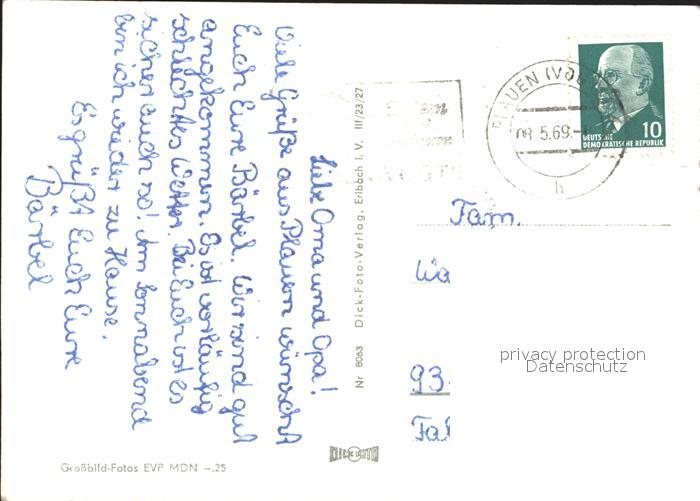 Liebe Oma und Opa!
Viele Grüße aus Plauen wünscht
Euch Eure Bärbel. Wir sind gut
angekommen. Es ist vorläufig
schlechtes Wetter. Bei Euch ist es
sicher auch so! Am Sonnabend
bin ich wieder zu Hause.
Es grüßt Euch Eure
Bärbel
Nr 8063 Dick-Foto-Verlag, Erlbach i. V. III/23/27
DICK FOTO
Großbild-Fotos EVP MDN -.25
PLAUEN (VOG
08.5.69.-
h
10
DEUTSCHE
DEMOKRATISCHE REPUBLIK
Fam.
Wa
93
Fal
privacy protection
Datenschutz